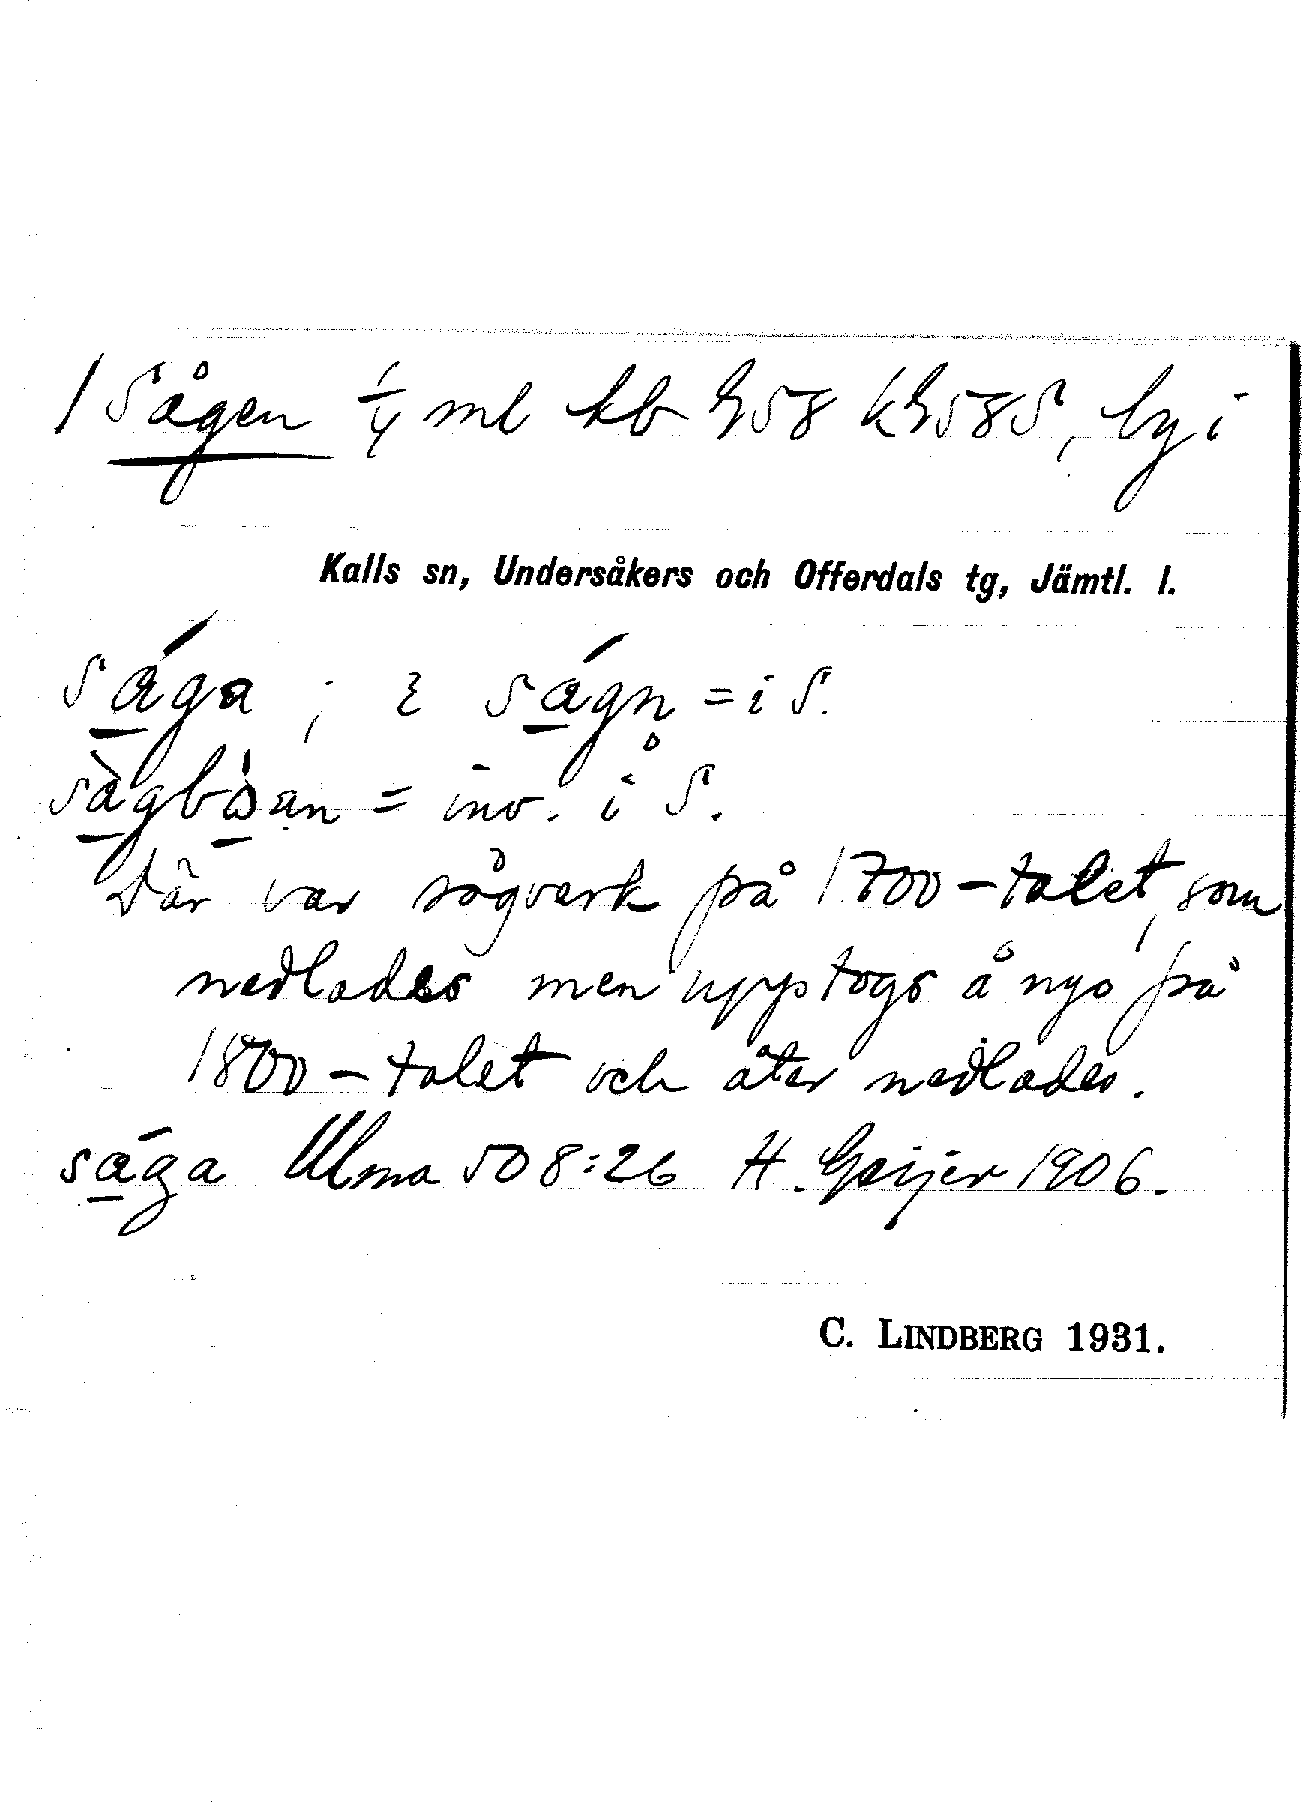 1 Sågen 1/4 ml kb G58 kG58S, by i
Kalls sn, Undersåkers och Offerdals tg, Jämtl. l.
såga ; i sågn = i S.
sàgbo̊an = inv. i S.
Där var sågverk på 1700-talet, som
nedlades men upptogs å nyo på
1800-talet och åter nedlades.
sāga Ulma 508:26 H. Geijer 1906.
C. LINDBERG 1931.